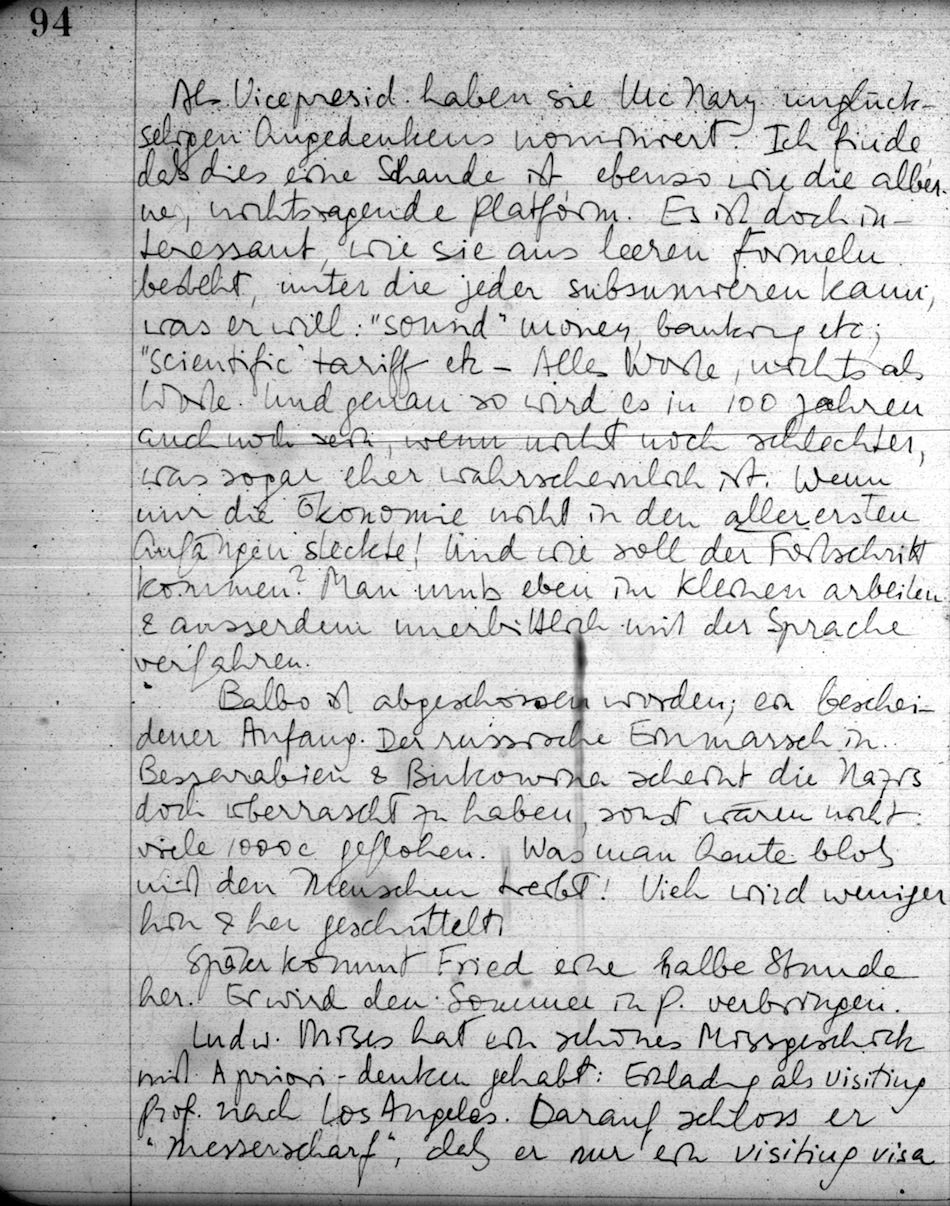 94
Als Vicepresid. haben sie McNary unglück-
seligen Angedenkens nominiert. Ich finde,
daß dies eine Schande ist, ebenso wie die alber-
ne, nichtssagende Platform. Es ist doch in-
teressant, wie sie aus leeren Formeln
besteht, unter die jeder subsumieren kann,
was er will: "sound" money, banking etc;
"scientific" tariff etc – Alles Worte, nichts als
Worte. Und genau so wird es in 100 Jahren
auch noch sein, wenn nicht noch schlechter,
was sogar eher wahrscheinlich ist. Wenn
nur die Ökonomie nicht in den allerersten
Anfängen steckte! Und wie soll der Fortschritt
kommen? Man muß eben im Kleinen arbeiten
& ausserdem unerbittlich mit der Sprache
verfahren.
Balbo ist abgeschossen worden; ein beschei-
dener Anfang. Der russische Einmarsch in
Bessarabien & Bukowina scheint die Nazis
doch überrascht zu haben, sonst wären nicht
viele 1000e geflohen. Was man heute bloß
mit den Menschen treibt! Vieh wird weniger
hin & her geschüttelt.
Später kommt Fried eine halbe Stunde
her. Er wird den Sommer in P. verbringen.
Ludw. Mises hat ein schönes Missgeschick
mit Apriori-denken gehabt: Einladg als visiting
Prof. nach Los Angeles. Darauf schloss er
"messerscharf", daß er nur ein visiting visa